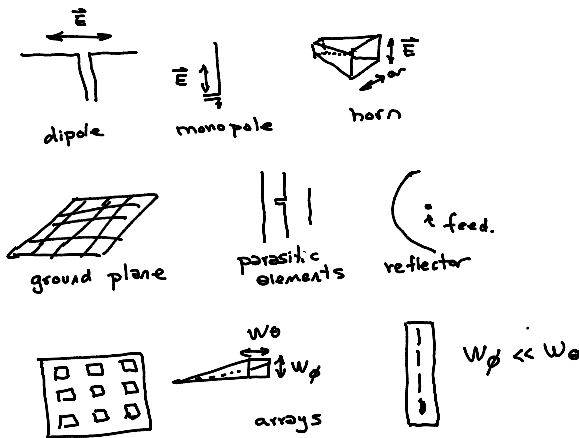 E
dipole
E
monopole
E
or
horn
ground plane
parasitic
elements
feed.
reflector
Wθ
Wϕ
arrays
Wϕ << Wθ